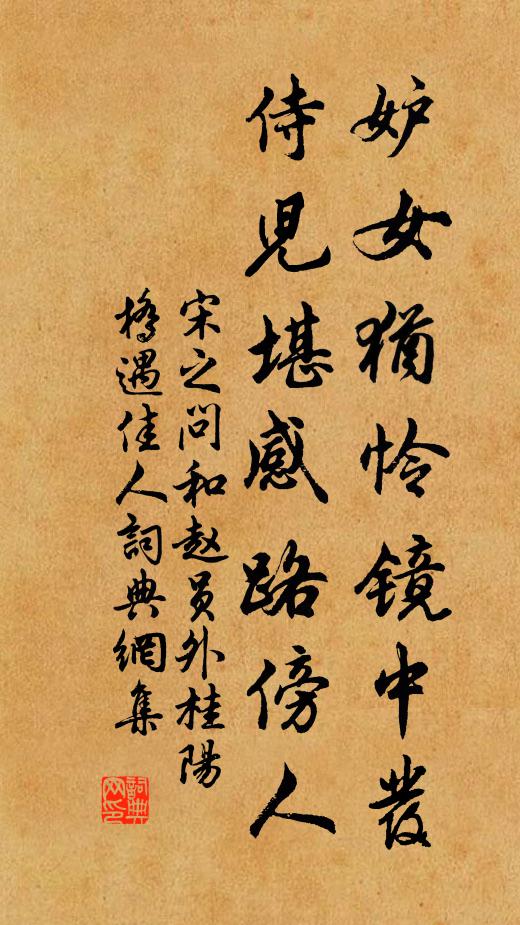 妒女犹怜镜中髮
侍児堪感路傍人
宋之问和赵员外桂陽
橋遇佳人詞典網集
詞典
网印